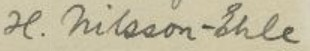 H. Nilsson-Ehle